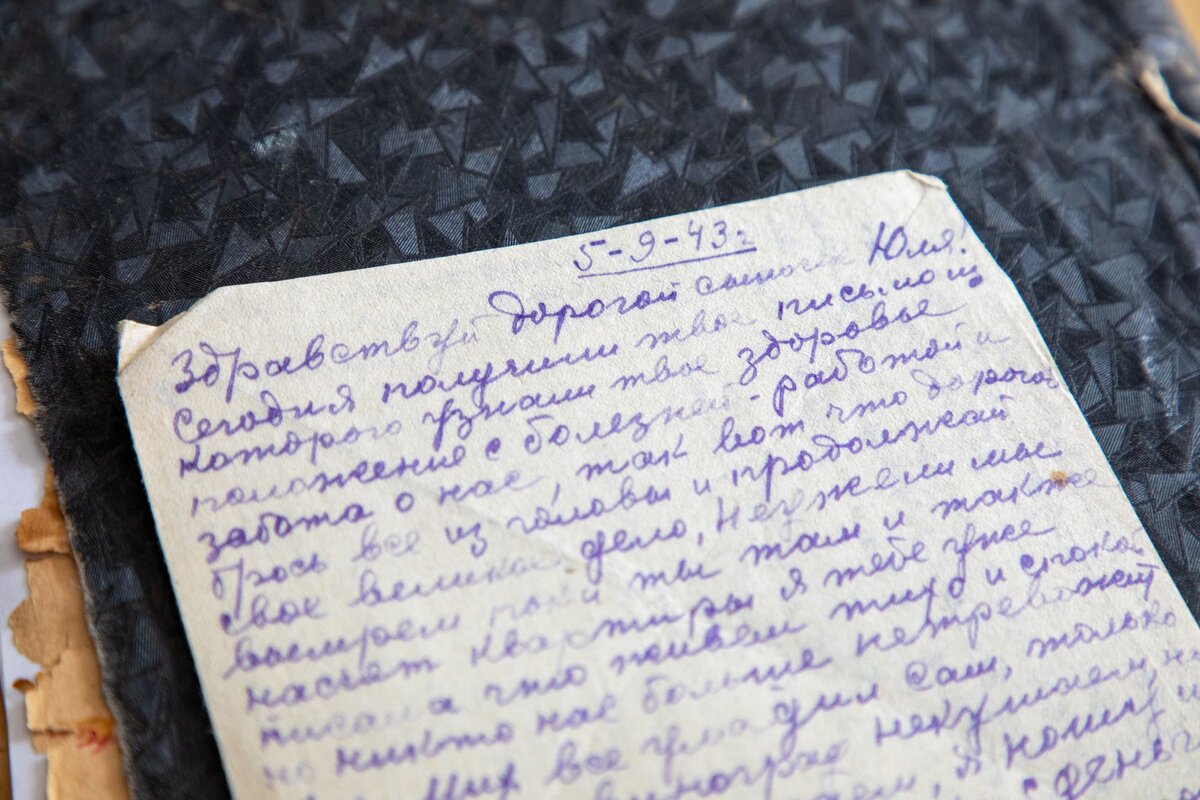 5-9-43г
Здравствуй дорогой сыночек Юля!
Сегодня получили твое письмо из
которого узнали твое здоровье
положение с болезней - работой и
забота о нас, так вот что дорогой
брось все из головы и продолжай
свое великое дело, Неужели мы
вымрем пока ты там и также
насчет квартиры я тебе уже
писала что живем тихо и спокой
но никто нас больше нетревожит
Мих все уладил сам, только
виноград некушаем, но
я ношу
с день